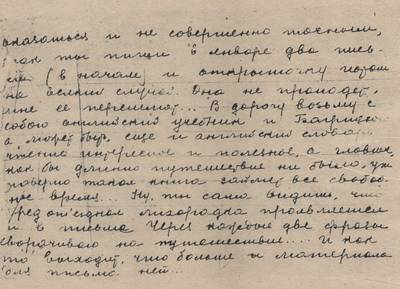 оказаться и не совершенно точным,
так ты пиши в январе два пись-
ма (в начале) и открытку потом
на всякий случай. Она не пропадет,
мне ее перешлют... В дорогу возьму с
собою английский учебник и
а может быть, еще и английский словарь
чтение интересное и полезное, а главное,
как бы длинно путешествие ни было, уж
наверно такая книга займет все свобод-
ное время.... Ну, ты сама видишь, что
предот'ездная лихорадка проявляется
и в письме. Через каждые две фразы
сворачиваю на путешествие..... И как
то выходит, что больше и материала
для письма нет...